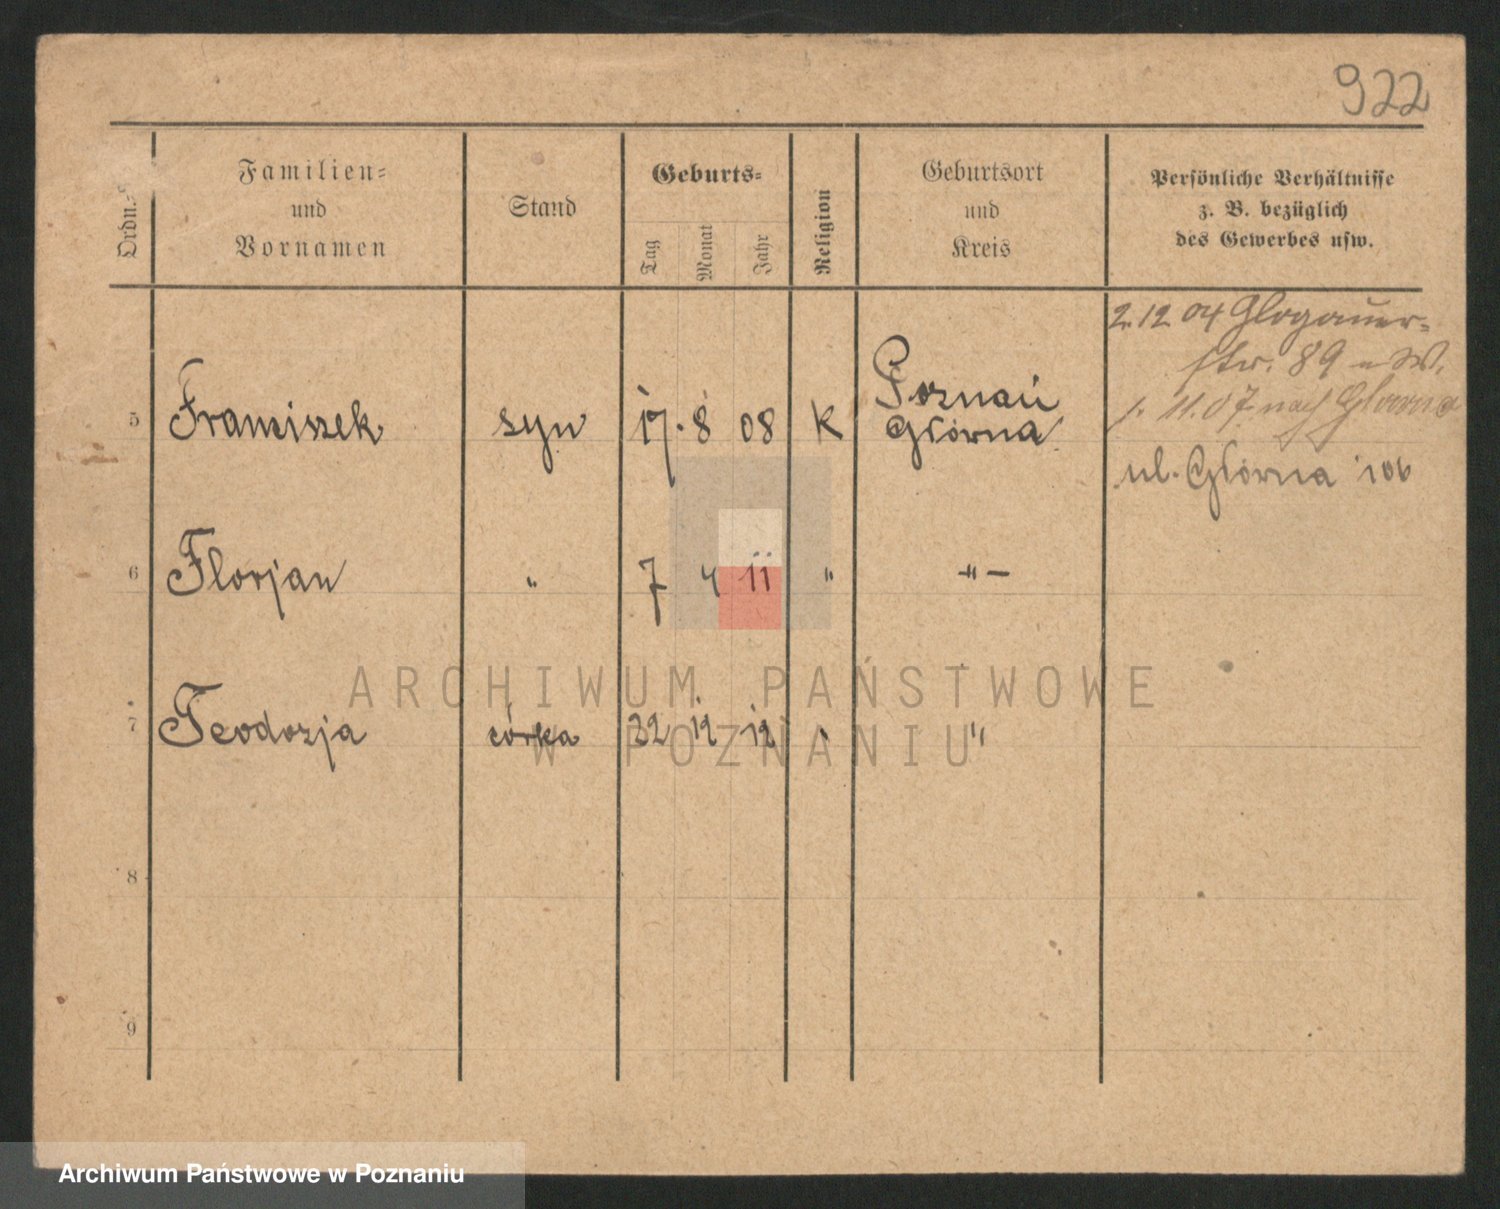 922
Ordn.-
Familien-
und
Vornamen
Stand
Geburts-
Tag
Monat
Jahr
Religion
Geburtsort
und
Kreis
Persönliche Verhältnisse
z. B. bezüglich
des Gewerbes usw.
2.12 04 Glogauer-
str. 89
1. 11.07 nach Glowna
ul. Glówna 106
5 Franciszek syn 17. 8 08 K Poznań
Glówna
6 Florjan " 7 4 11 " -"-
7 Teodozja córka 22 12 12 " "
8
9
ARCHIWUM PAŃSTWOWE
W POZNANIU
Archiwum Państwowe w Poznaniu